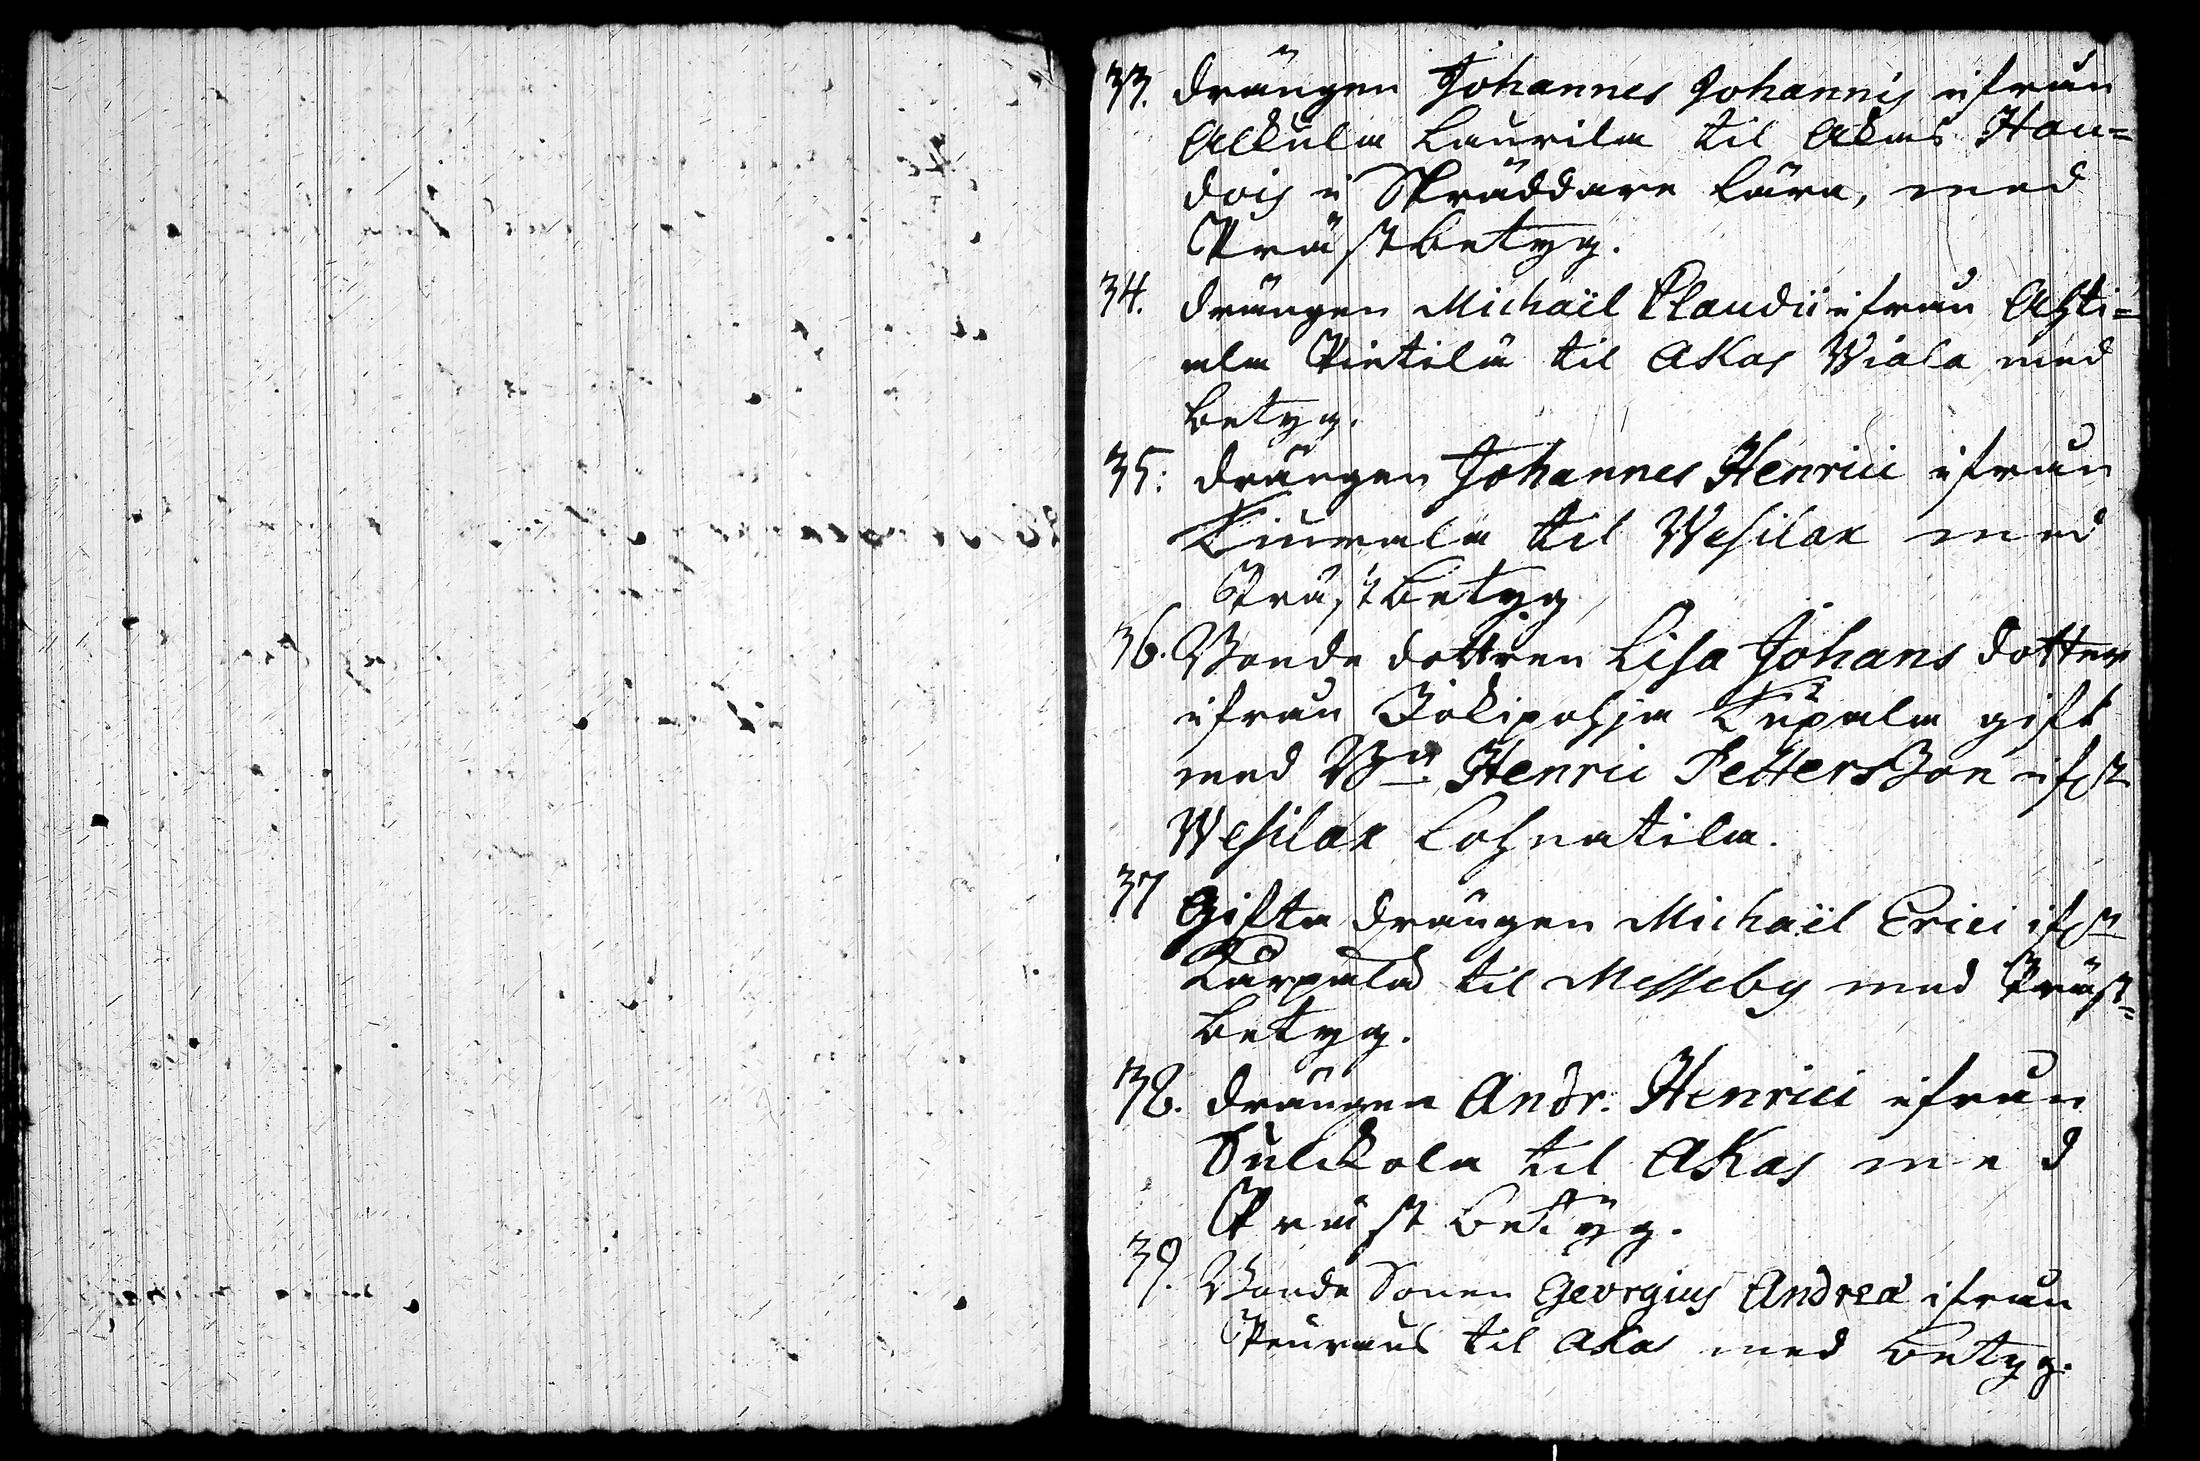 33. drängen Johannes Johannis ifrån
Alkula Laurila til Akas Hau=
dois i Skräddare lära, med
Prästbetyg.
34. drängen Michaël Claudii ifrån Ahti=
ala Pietilä til Akas Wiala med
betyg.
35. drängen Johannes Henrici ifrån
Kiurala til Wesilax med
Prästbetyg
36. Bonde dottren Lisa Johans dotter
ifrån Jokipohja gift
med Henric PettersSon
Wesilax Lohnatila.
37 Gifta drängen Michaël Erici
Karpala til Messeby med Präst=
betyg.
38. drängen Andr. Henrici ifrån
Sulckola til Akas med
Präst betyg.
39. Bonde Sonen Georgius Andreæ ifrån
til Akas med betyg.